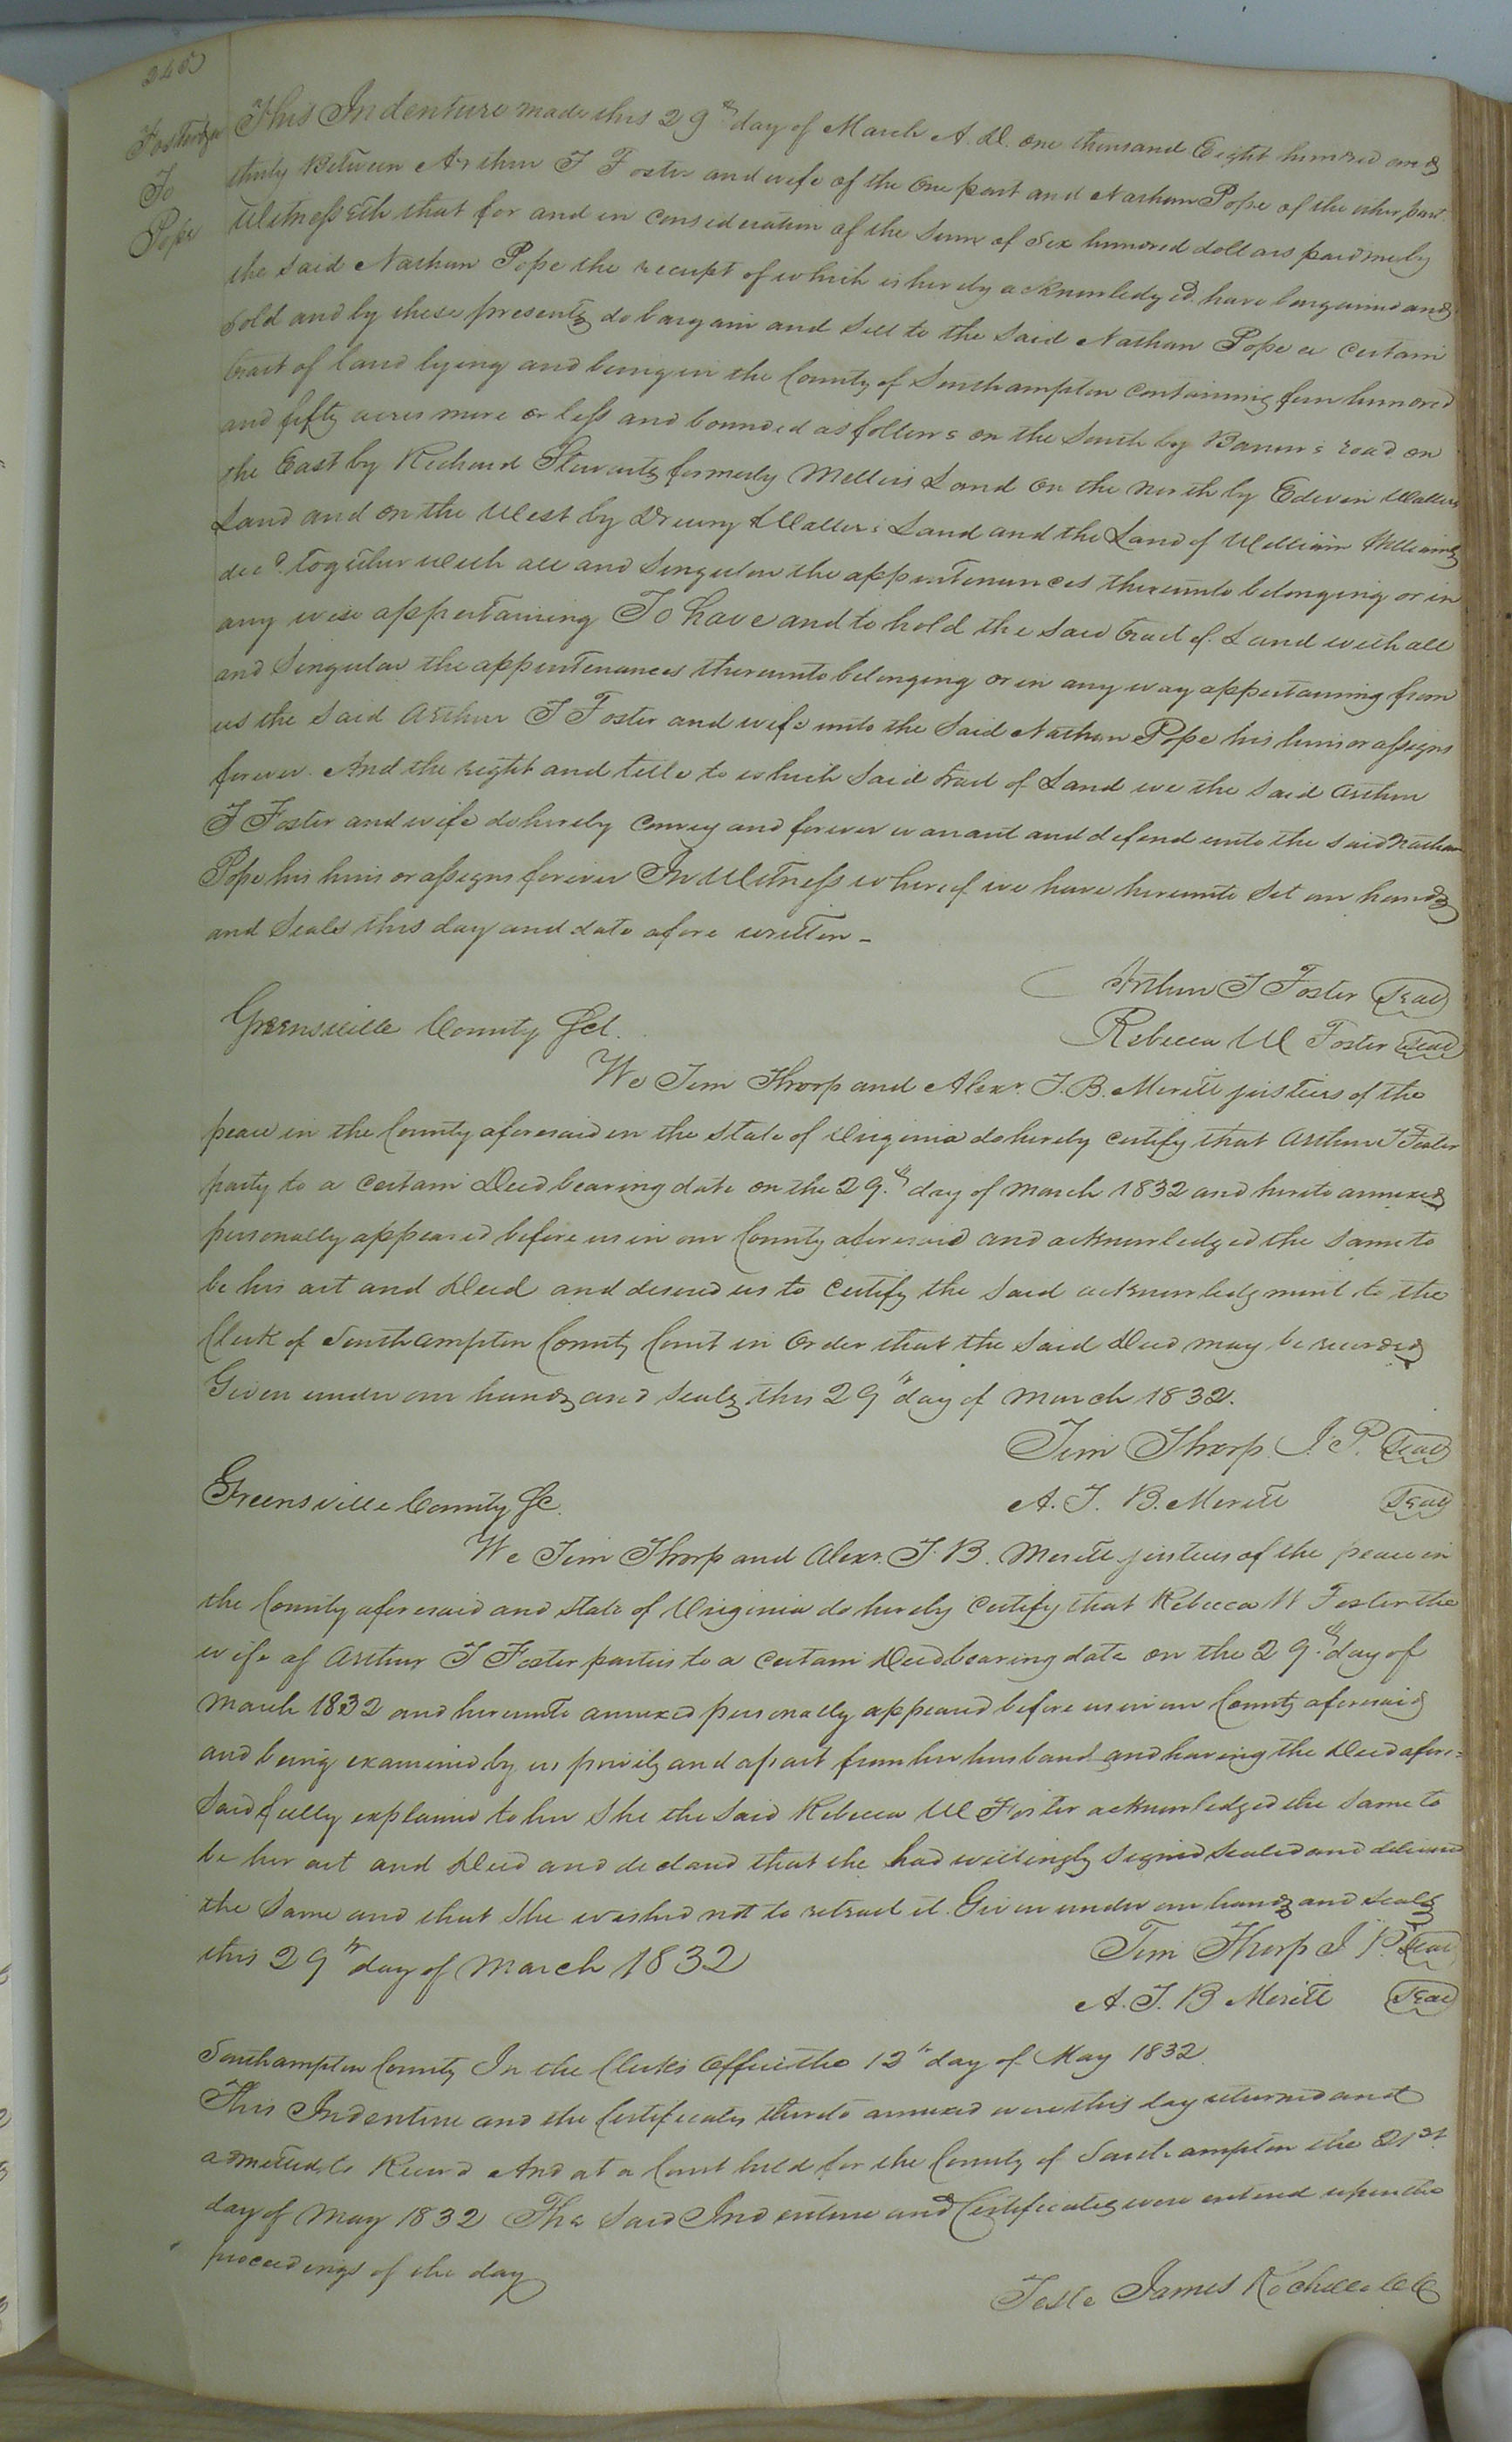 Foster &c
To
Pope
This Indenture made this 29th day of March A. D. one thousand Eight hundred and
thirty Between Arthur T Foster and wife of the one part and Nathan Pope of the other part
Witnesseth that for and in consideration of the sum of six hundred dollars paid me by
the said Nathan Pope the receipt of which is hereby acknowledged have bargained and
sold and by these presents do bargain and sell to the said Nathan Pope a certain
tract of land lying and being in the County of Southampton containing four hundred
and fifty acres more or less and bounded as follows on the South by Barrows road on
the East by Richard Stewarts formerly Land on the North by Edwin Wallers
Land and on the West by Drewry Wallers Land and the Land of William Williams
decd. together with all and Singular the appurtenances thereunto belonging or in
any wise appertaining To have and to hold the said tract of Land with all
and Singular the appurtenances thereunto belonging or in any way appertaining from
us the said Arthur T Foster and wife unto the Said Nathan Pope his heirs or assigns
forever. And the right and title to which Said tract of Land we the said Arthur
T Foster and wife do hereby convey and forever warrant and defend unto the said Nathan
Pope his heirs or assigns forever In Witness whereof we have hereunto Set our hands
and Seals this day and date afore written -
Arthur T Foster Seal
Rebecca W Foster Seal
Greensville County Sct.
We Tim Thorp and Alexr. T. B. Meritt justices of the
peace in the County aforesaid in the State of Virginia do hereby certify that Arthur T Foster
party to a certain Deed bearing date on the 29th day of March 1832 and hereto annexed
personally appeared before us in our County aforesaid and acknowledged the same to
be his act and Deed and desired us to certify the said acknowledgment to the
Clerk of Southampton County Court in order that the Said Deed may be recorded
Given under our hands and seals this 29th day of March 1832.
Tim Thorp J. P. Seal
A. T. B. Meritt Seal
Greensville County Sc.
We Tim Thorp and Alexr. T. B. Meritt justices of the peace in
the County aforesaid and State of Virginia do hereby certify that Rebecca W Foster the
wife of Arthur T Foster parties to a certain Deed bearing date on the 29th day of
March 1832 and hereunto annexed personally appeared before us in our County aforesaid
and being examined by us privily and apart from her husband and having the Deed afore=
Said fully explained to her She the Said Rebecca W Foster acknowledged the same to
be her act and Deed and declared that she had willingly signed sealed and delivered
the Same and that she wished not to retract it. Given under our hands and seals
this 29th day of March 1832
Tim Thorp J P. Seal
A. T. B Meritt Seal
Southampton County In the Clerks Office the 12th day of May 1832.
This Indenture and the Certificates thereto annexed were this day returned and
admitted to Record And at a Court held for the County of Southampton the 21st
day of May 1832 The Said Indenture and Certificates were entered upon the
proceedings of the day
Teste James Rochelle CC